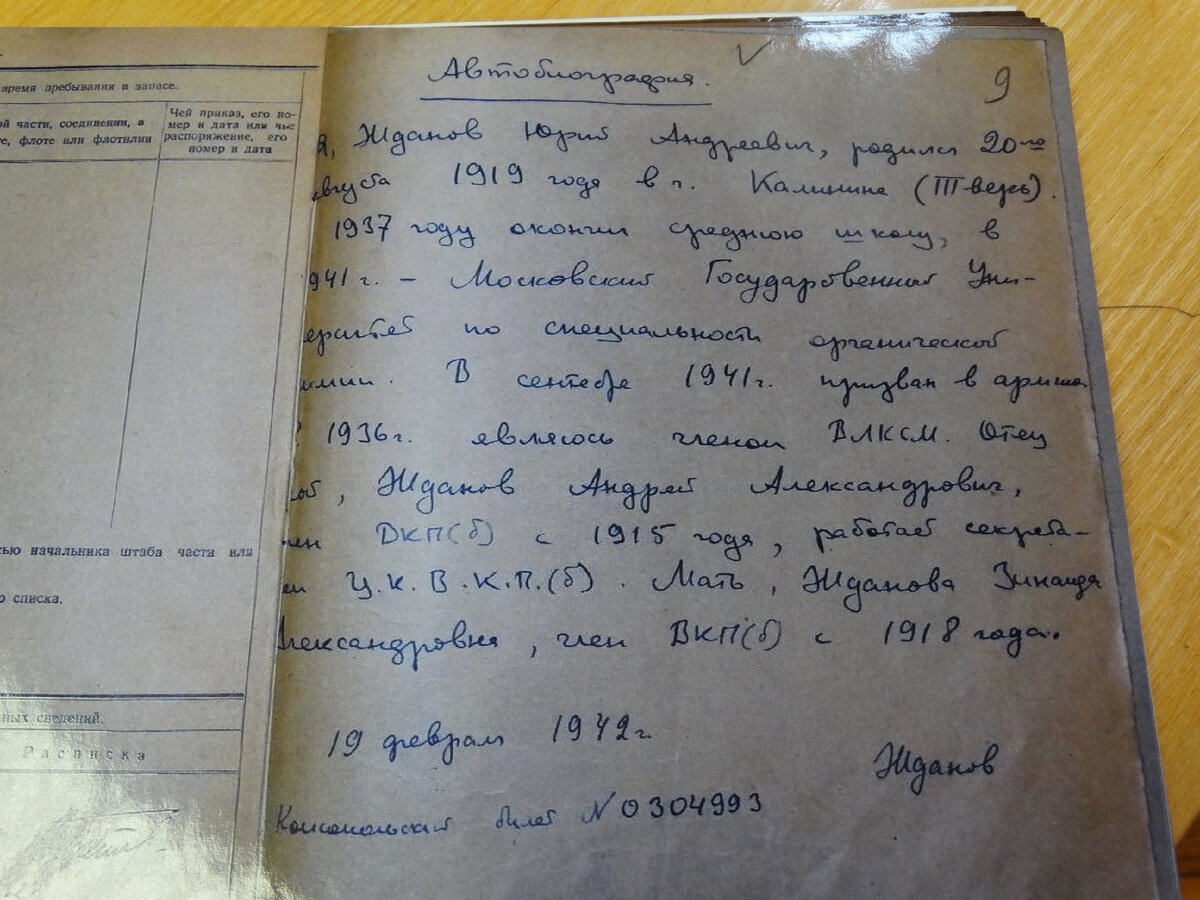 время пребывания в запасе.
ой части, соединении, а
те, флоте или флотилии
Чей приказ, его но-
мер и дата или чье
распоряжение, его
номер и дата
сью начальника штаба части или
о списка.
ных сведений.
Расписка
9
Автобиография.
Я, Жданов Юрий Андреевич, родился 20-го
августа 1919 года в г. Калинине (Тверь).
1937 году окончил среднюю школу, в
941 г. – Московский Государственный Уни-
ерситет по специальности органической
имии. В сентябре 1941 г. призван в армию
1936 г. являюсь членом ВЛКСМ. Отец
ой, Жданов Андрей Александрович,
лен ВКП(б) с 1915 года, работает секрета-
ем Ц.К.В.К.П.(б). Мать, Жданова Зинаида
Александровна, член ВКП(б) с 1918 года.
19 февраля 1942 г.
Жданов
Комсомольский билет № 0304993